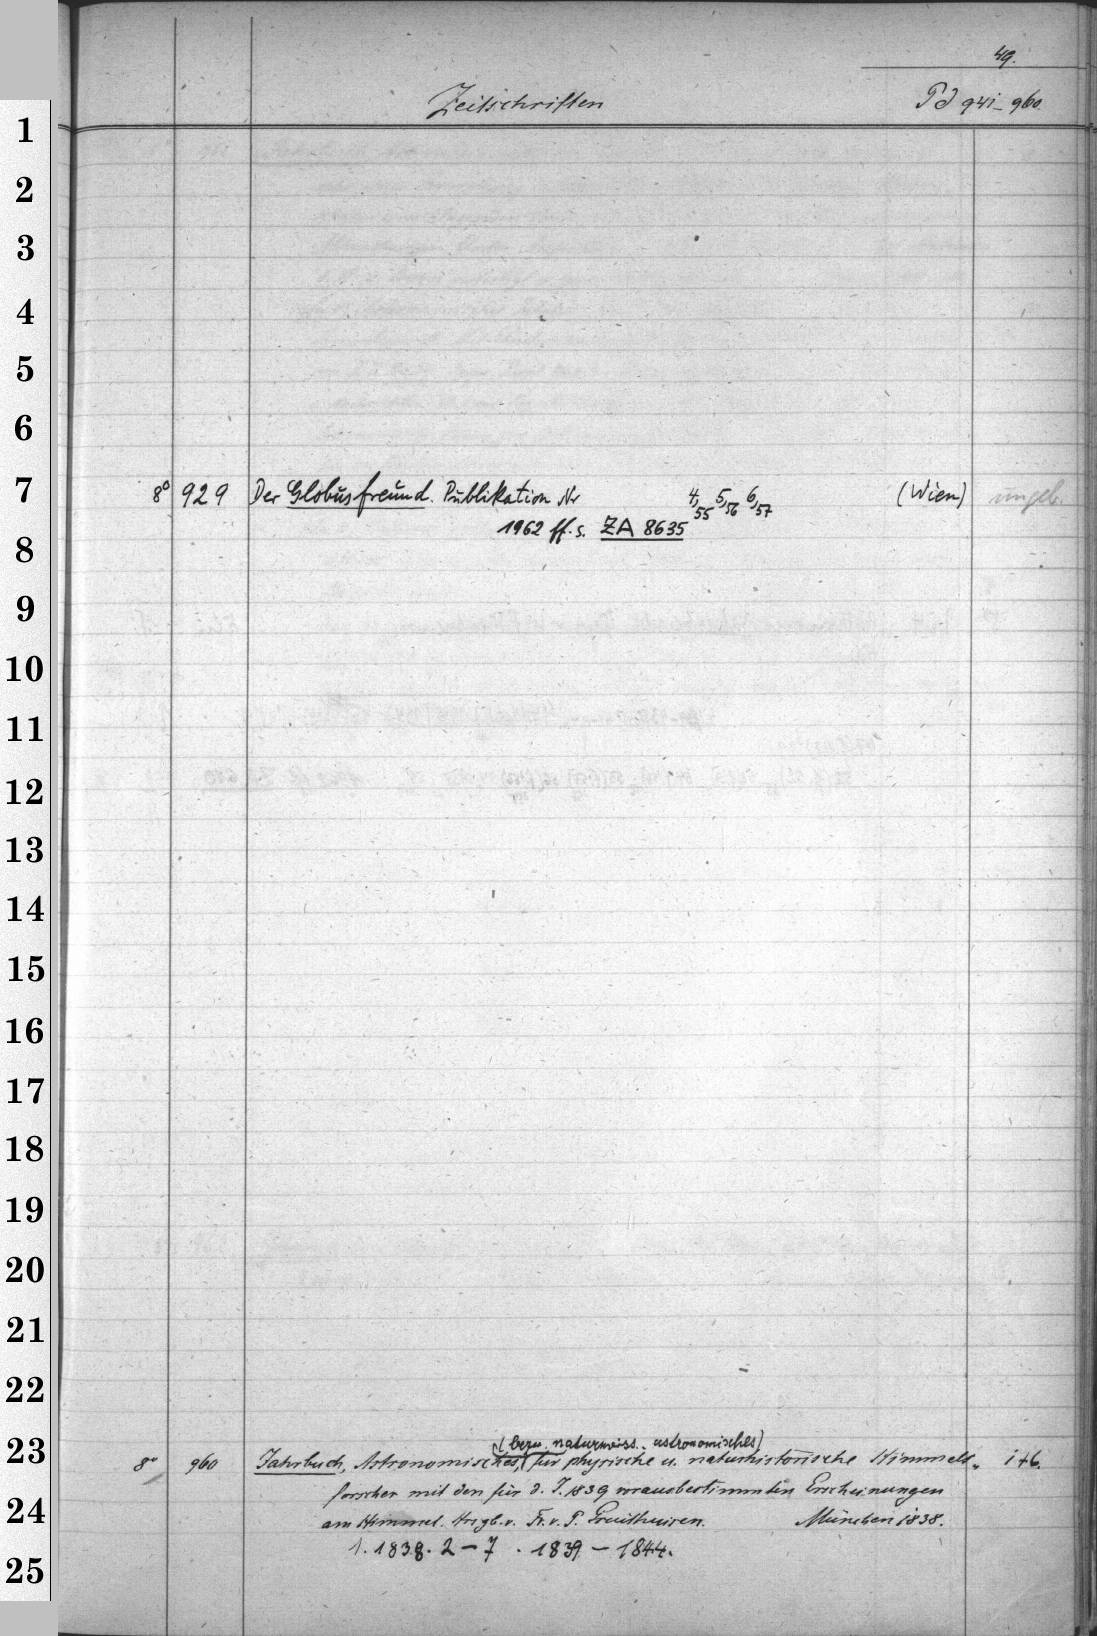 49.
Zeitschriften Pd 941-960.
1
2
3
4
5
6
7
8° 929 Der Globusfreund. Publikation Nr 4,55 5,56 6,57 (Wien) ungeb.
1962 ff. s. ZA 8635
8
9
10
11
12
13
14
15
16
17
18
19
20
21
22
23
(bezw. naturwiss.-astronomisches)
8° 960 Jahrbuch, Astronomisches, für physische u. naturhistorische Himmels-
forscher mit den für d. J. 1839 vorausbestimmten Erscheinungen
24
am Himmel. Hrsgb. v. Fr. v. P. Gruithuisen. München 1838.
1. 1838. 2-7. 1839-1844.
25